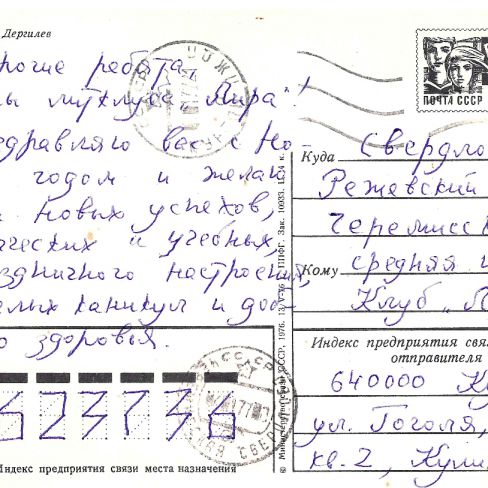 Дергилев
рогие ребята
ы литклуба "Лира"!
здравляю вас с Но-
годом и желаю
новых успехов,
ческих и учебных,
здничного настроения,
елых каникул и доб-
о здоровья.
Индекс предприятия связи места назначения
© Министерство связи СССР, 1976.
ППФГ. Зак. 10933. Ц. 4 к.
ПОЧТА СССР
Куда Свердло
Режевский
Черемисск
Кому средняя ш
Клуб "Л
Индекс предприятия связ
отправителя
640000 Ку
ул. Гоголя,
кв. 2, Кули